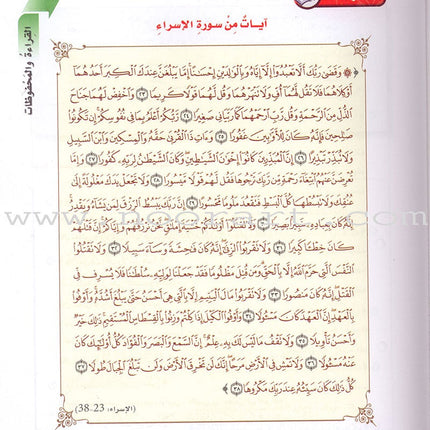 القراءة والمحفوظات
آيَاتٌ مِنْ سورةِ الإسراءِ
۞ وَقَضَىٰ رَبُّكَ أَلَّا تَعْبُدُوٓا۟ إِلَّآ إِيَّاهُ وَبِٱلْوَٰلِدَيْنِ إِحْسَٰنًا إِمَّا يَبْلُغَنَّ عِندَكَ ٱلْكِبَرَ أَحَدُهُمَآ
أَوْ كِلَاهُمَا فَلَا تَقُل لَّهُمَآ أُفٍّ وَلَا تَنْهَرْهُمَا وَقُل لَّهُمَا قَوْلًا كَرِيمًا ٢٣ وَٱخْفِضْ لَهُمَا جَنَاحَ
ٱلذُّلِّ مِنَ ٱلرَّحْمَةِ وَقُل رَّبِّ ٱرْحَمْهُمَا كَمَا رَبَّيَانِى صَغِيرًا ٢٤ رَّبُّكُمْ أَعْلَمُ بِمَا فِى نُفُوسِكُمْ إِن تَكُونُوا۟
صَٰلِحِينَ فَإِنَّهُۥ كَانَ لِلْأَوَّٰبِينَ غَفُورًا ٢٥ وَءَاتِ ذَا ٱلْقُرْبَىٰ حَقَّهُۥ وَٱلْمِسْكِينَ وَٱبْنَ ٱلسَّبِيلِ
وَلَا تُبَذِّرْ تَبْذِيرًا ٢٦ إِنَّ ٱلْمُبَذِّرِينَ كَانُوٓا۟ إِخْوَٰنَ ٱلشَّيَٰطِينِ وَكَانَ ٱلشَّيْطَٰنُ لِرَبِّهِۦ كَفُورًا ٢٧ وَإِمَّا
تُعْرِضَنَّ عَنْهُمُ ٱبْتِغَآءَ رَحْمَةٍ مِّن رَّبِّكَ تَرْجُوهَا فَقُل لَّهُمْ قَوْلًا مَّيْسُورًا ٢٨ وَلَا تَجْعَلْ يَدَكَ مَغْلُولَةً إِلَىٰ
عُنُقِكَ وَلَا تَبْسُطْهَا كُلَّ ٱلْبَسْطِ فَتَقْعُدَ مَلُومًا مَّحْسُورًا ٢٩ إِنَّ رَبَّكَ يَبْسُطُ ٱلرِّزْقَ لِمَن يَشَآءُ وَيَقْدِرُ
إِنَّهُۥ كَانَ بِعِبَادِهِۦ خَبِيرًۢا بَصِيرًا ٣٠ وَلَا تَقْتُلُوٓا۟ أَوْلَٰدَكُمْ خَشْيَةَ إِمْلَٰقٍ نَّحْنُ نَرْزُقُهُمْ وَإِيَّاكُمْ إِنَّ قَتْلَهُمْ
كَانَ خِطْـًٔا كَبِيرًا ٣١ وَلَا تَقْرَبُوا۟ ٱلزِّنَىٰٓ إِنَّهُۥ كَانَ فَٰحِشَةً وَسَآءَ سَبِيلًا ٣٢ وَلَا تَقْتُلُوا۟
ٱلنَّفْسَ ٱلَّتِى حَرَّمَ ٱللَّهُ إِلَّا بِٱلْحَقِّ وَمَن قُتِلَ مَظْلُومًا فَقَدْ جَعَلْنَا لِوَلِيِّهِۦ سُلْطَٰنًا فَلَا يُسْرِف فِّى
ٱلْقَتْلِ إِنَّهُۥ كَانَ مَنصُورًا ٣٣ وَلَا تَقْرَبُوا۟ مَالَ ٱلْيَتِيمِ إِلَّا بِٱلَّتِى هِىَ أَحْسَنُ حَتَّىٰ يَبْلُغَ أَشُدَّهُۥ وَأَوْفُوا۟
بِٱلْعَهْدِ إِنَّ ٱلْعَهْدَ كَانَ مَسْـُٔولًا ٣٤ وَأَوْفُوا۟ ٱلْكَيْلَ إِذَا كِلْتُمْ وَزِنُوا۟ بِٱلْقِسْطَاسِ ٱلْمُسْتَقِيمِ ذَٰلِكَ خَيْرٌ
وَأَحْسَنُ تَأْوِيلًا ٣٥ وَلَا تَقْفُ مَا لَيْسَ لَكَ بِهِۦ عِلْمٌ إِنَّ ٱلسَّمْعَ وَٱلْبَصَرَ وَٱلْفُؤَادَ كُلُّ أُو۟لَٰٓئِكَ كَانَ
عَنْهُ مَسْـُٔولًا ٣٦ وَلَا تَمْشِ فِى ٱلْأَرْضِ مَرَحًا إِنَّكَ لَن تَخْرِقَ ٱلْأَرْضَ وَلَن تَبْلُغَ ٱلْجِبَالَ طُولًا ٣٧
كُلُّ ذَٰلِكَ كَانَ سَيِّئُهُۥ عِندَ رَبِّكَ مَكْرُوهًا ٣٨
(الإسراء: 23-38)